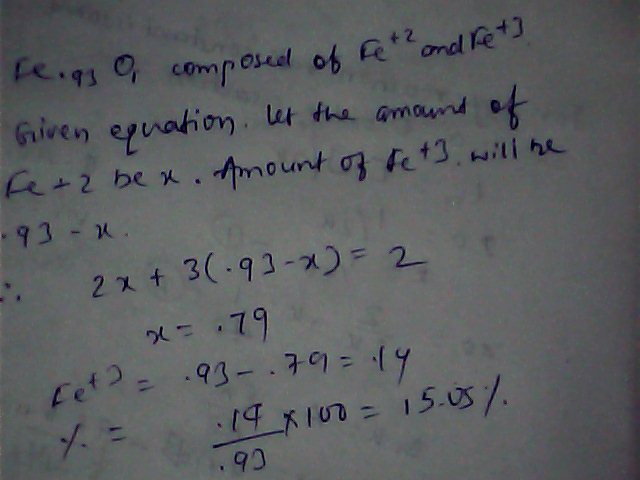 Fe.93 O1 composed of Fe+2 and Fe+3
Given equation. let the amount of
Fe+2 be x. Amount of Fe+3. will be
.93 - x.
∴ 2x + 3(.93-x) = 2
x = .79
Fe+3 = .93 - .79 = .14
% = .14/.93 x 100 = 15.05%.